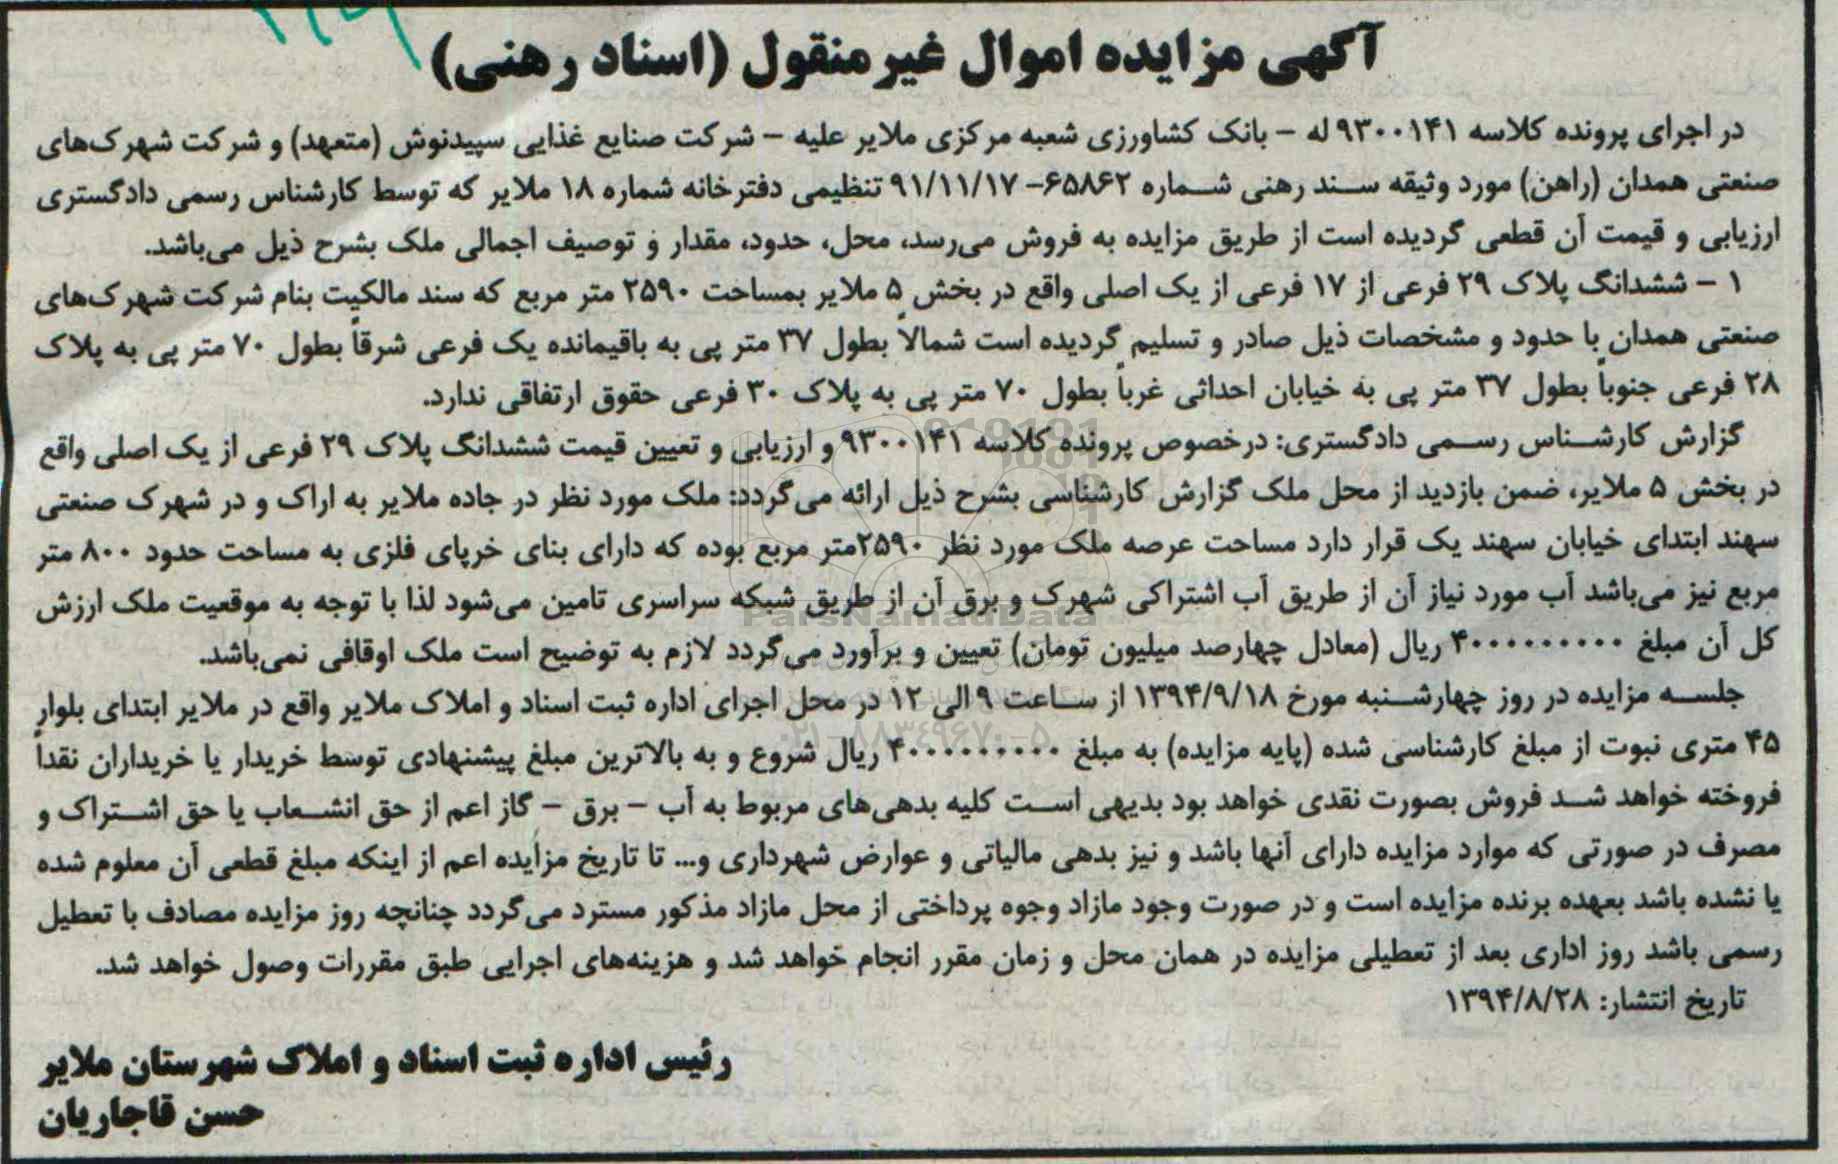 آگهی مزایده اموال غیرمنقول (اسناد رهنی)
در اجرای پرونده کلاسه ۹۳۰۰۱۴۱ له – بانک کشاورزی شعبه مرکزی ملایر علیه – شرکت صنایع غذایی سپیدنوش (متعهد) و شرکت شهرک‌های
صنعتی همدان (راهن) مورد وثیقه سند رهنی شماره ۶۵۸۶۲– ۹۱/۱۱/۱۷ تنظیمی دفترخانه شماره ۱۸ ملایر که توسط کارشناس رسمی دادگستری
ارزیابی و قیمت آن قطعی گردیده است از طریق مزایده به فروش می‌رسد، محل، حدود، مقدار و توصیف اجمالی ملک بشرح ذیل می‌باشد.
۱ – ششدانگ پلاک ۲۹ فرعی از ۱۷ فرعی از یک اصلی واقع در بخش ۵ ملایر بمساحت ۲۵۹۰ متر مربع که سند مالکیت بنام شرکت شهرک‌های
صنعتی همدان با حدود و مشخصات ذیل صادر و تسلیم گردیده است شمالاً بطول ۳۷ متر پی به باقیمانده یک فرعی شرقاً بطول ۷۰ متر پی به پلاک
۲۸ فرعی جنوباً بطول ۳۷ متر پی به خیابان احداثی غرباً بطول ۷۰ متر پی به پلاک ۳۰ فرعی حقوق ارتفاقی ندارد.
گزارش کارشناس رسمی دادگستری: درخصوص پرونده کلاسه ۹۳۰۰۱۴۱ و ارزیابی و تعیین قیمت ششدانگ پلاک ۲۹ فرعی از یک اصلی واقع
در بخش ۵ ملایر، ضمن بازدید از محل ملک گزارش کارشناسی بشرح ذیل ارائه می‌گردد: ملک مورد نظر در جاده ملایر به اراک و در شهرک صنعتی
سهند ابتدای خیابان سهند یک قرار دارد مساحت عرصه ملک مورد نظر ۲۵۹۰متر مربع بوده که دارای بنای خرپای فلزی به مساحت حدود ۸۰۰ متر
مربع نیز می‌باشد آب مورد نیاز آن از طریق آب اشتراکی شهرک و برق آن از طریق شبکه سراسری تامین می‌شود لذا با توجه به موقعیت ملک ارزش
کل آن مبلغ ۴۰۰۰۰۰۰۰۰۰ ریال (معادل چهارصد میلیون تومان) تعیین و برآورد می‌گردد لازم به توضیح است ملک اوقافی نمی‌باشد.
جلسه مزایده در روز چهارشنبه مورخ ۱۳۹۴/۹/۱۸ از ساعت ۹ الی ۱۲ در محل اجرای اداره ثبت اسناد و املاک ملایر واقع در ملایر ابتدای بلوار
۴۵ متری نبوت از مبلغ کارشناسی شده (پایه مزایده) به مبلغ ۴۰۰۰۰۰۰۰۰۰ ریال شروع و به بالاترین مبلغ پیشنهادی توسط خریدار یا خریداران نقداً
فروخته خواهد شد فروش بصورت نقدی خواهد بود بدیهی است کلیه بدهی‌های مربوط به آب – برق – گاز اعم از حق انشعاب یا حق اشتراک و
مصرف در صورتی که موارد مزایده دارای آنها باشد و نیز بدهی مالیاتی و عوارض شهرداری و... تا تاریخ مزایده اعم از اینکه مبلغ قطعی آن معلوم شده
یا نشده باشد بعهده برنده مزایده است و در صورت وجود مازاد وجوه پرداختی از محل مازاد مذکور مسترد می‌گردد چنانچه روز مزایده مصادف با تعطیل
رسمی باشد روز اداری بعد از تعطیلی مزایده در همان محل و زمان مقرر انجام خواهد شد و هزینه‌های اجرایی طبق مقررات وصول خواهد شد.
تاریخ انتشار: ۱۳۹۴/۸/۲۸
رئیس اداره ثبت اسناد و املاک شهرستان ملایر
حسن قاجاریان
ParsNamadData
۰۲۱–۸۸۳۴۹۶۷۰–۵